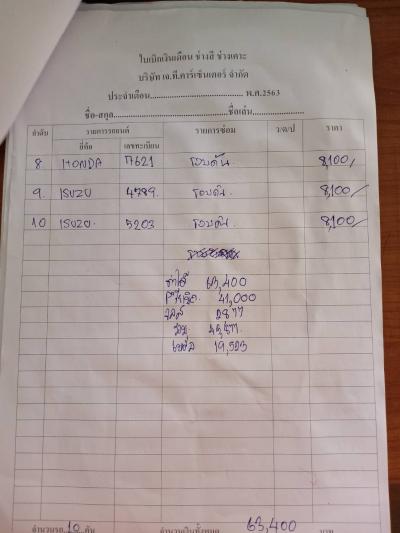 ใบเบิกเงินเดือน ช่างสี ช่างเคาะ
บริษัท เจ.ที.คาร์เซ็นเตอร์ จำกัด
ประจำเดือน............................................ พ.ศ.2563
ชื่อ-สกุล............................................ชื่อเล่น....................
ลำดับ รายการรถยนต์ รายการซ่อม ว/ด/ป ราคา
ยี่ห้อ เลขทะเบียน
8 HONDA 7621 รอบคัน 8,100/
9. ISUZU 4789. รอบคัน. 8,100/
10 ISUZU. 5203 รอบคัน. 8,100/
63,400
41,000
2877
19,523
จำนวนรถ 10 คัน จำนวนเงินทั้งหมด 63,400 บาท